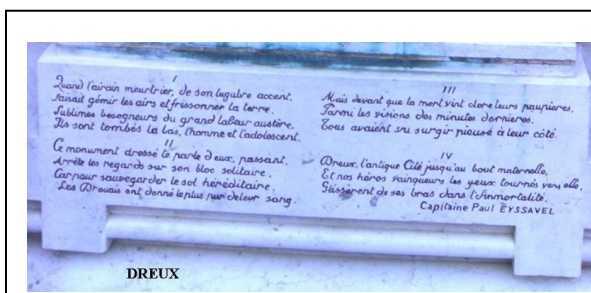 I
Quand l'airain meurtrier, de son lugubre accent,
Faisait gémir les airs et frissonner la terre,
Sublimes besogneurs du grand labeur austère,
Ils sont tombés là bas, l'homme et l'adolescent.
II
Ce monument dressé te parle d'eux, passant,
Arrête tes regards sur son bloc solitaire.
Car pour sauvegarder le sol héréditaire.
Les Drouais ont donné le plus pur de leur sang.
III
Mais devant que la mort vint clore leurs paupières,
Parmi les visions des minutes dernières,
Tous avaient vu surgir pieuse à leur côté.
IV
Dreux, l'antique Cité jusqu'au bout maternelle,
Et nos héros vainqueurs les yeux tournés vers elle,
Glissèrent de ses bras dans l'Immortalité.
Capitaine Paul EYSSAVEL
DREUX